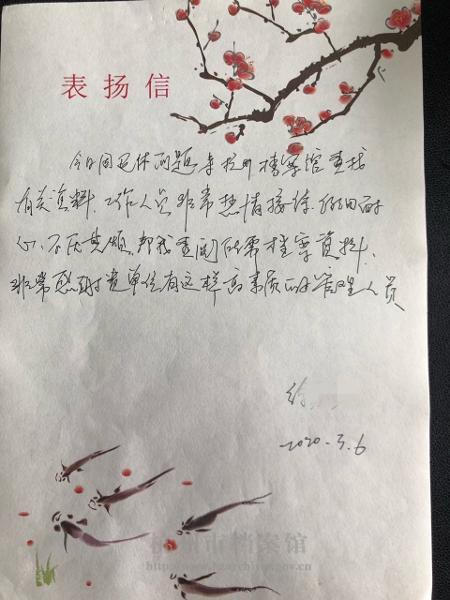 表扬信
今日因退休问题来杭州档案馆查找
有关资料、工作人员非常热情接待、细致耐
心、不厌其烦、帮我查阅所需档案资料、
非常感谢贵单位有这样高素质的管理人员
徐
2020.3.6
杭州市档案馆